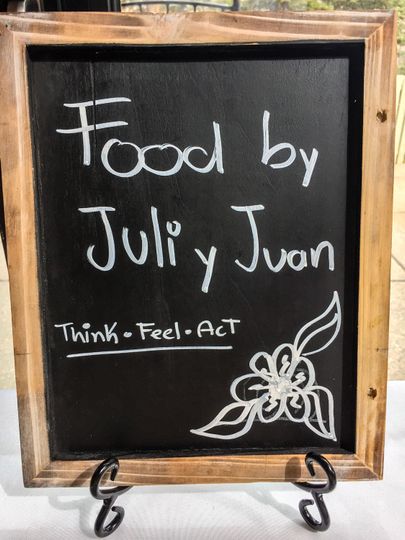 Food by
Juli y Juan
Think • Feel • Act